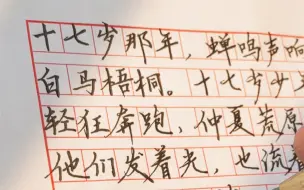 十七岁那年，蝉鸣声响
白马梧桐。十七岁少
轻狂奔跑，仲夏荒原
他们发着光，也流着